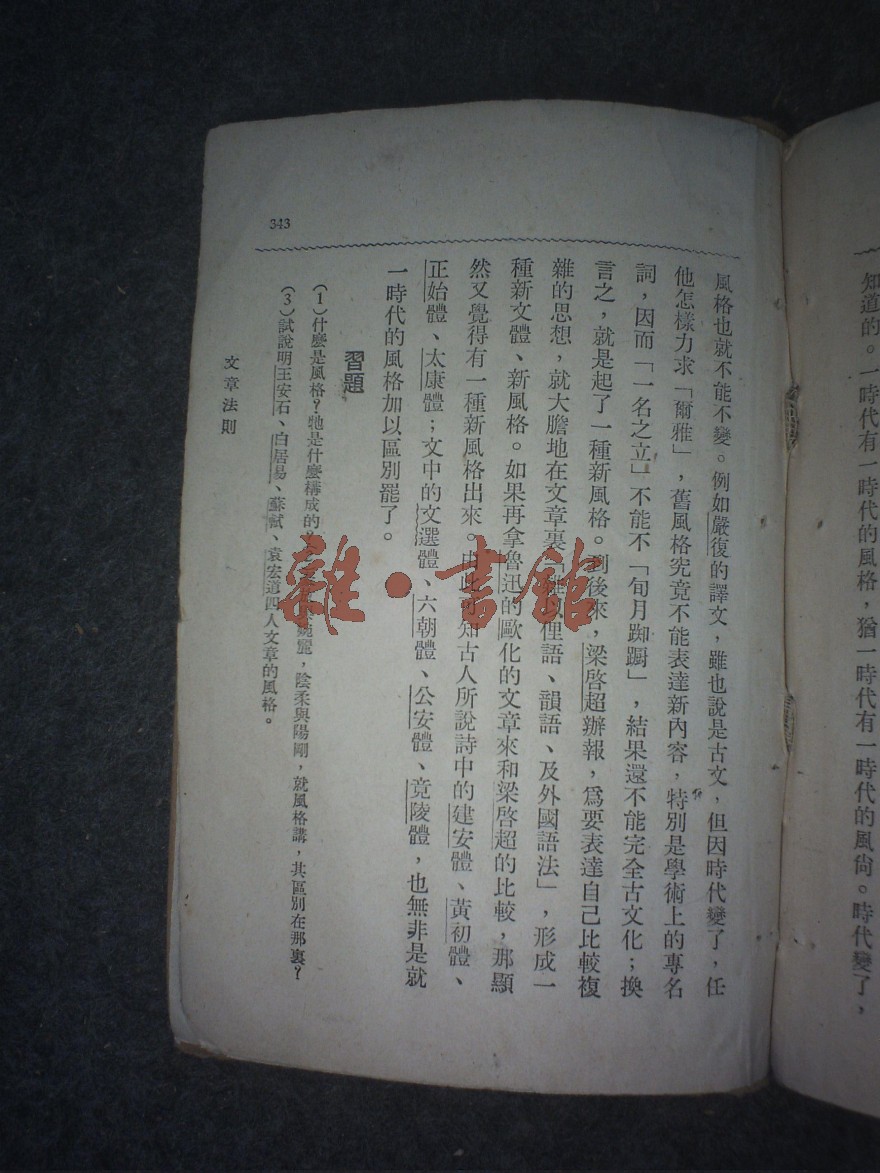 知道的。一時代有一時代的風格，猶一時代有一時代的風尚。時代變了，
風格也就不能不變。例如嚴復的譯文，雖也說是古文，但因時代變了，任
他怎樣力求「爾雅」，舊風格究竟不能表達新內容，特別是學術上的專名
詞，因而「一名之立」不能不「旬月踟蹰」，結果還不能完全古文化；換
言之，就是起了一種新風格。到後來，梁啓超辦報，爲要表達自己比較複
雜的思想，就大膽地在文章裏「俚語、韻語、及外國語法」，形成一
種新文體、新風格。如果再拿魯迅的歐化的文章來和梁啓超的比較，那顯
然又覺得有一種新風格出來。由此可知古人所說詩中的建安體、黃初體、
正始體、太康體；文中的文選體、六朝體、公安體、竟陵體，也無非是就
一時代的風格加以區別罷了。
習題
(1)什麼是風格？牠是什麼構成的？婉麗，陰柔與陽剛，就風格講，其區別在那裏？
(3)試說明王安石、白居易、蘇軾、袁宏道四人文章的風格。
文章法則
343
雜·書館